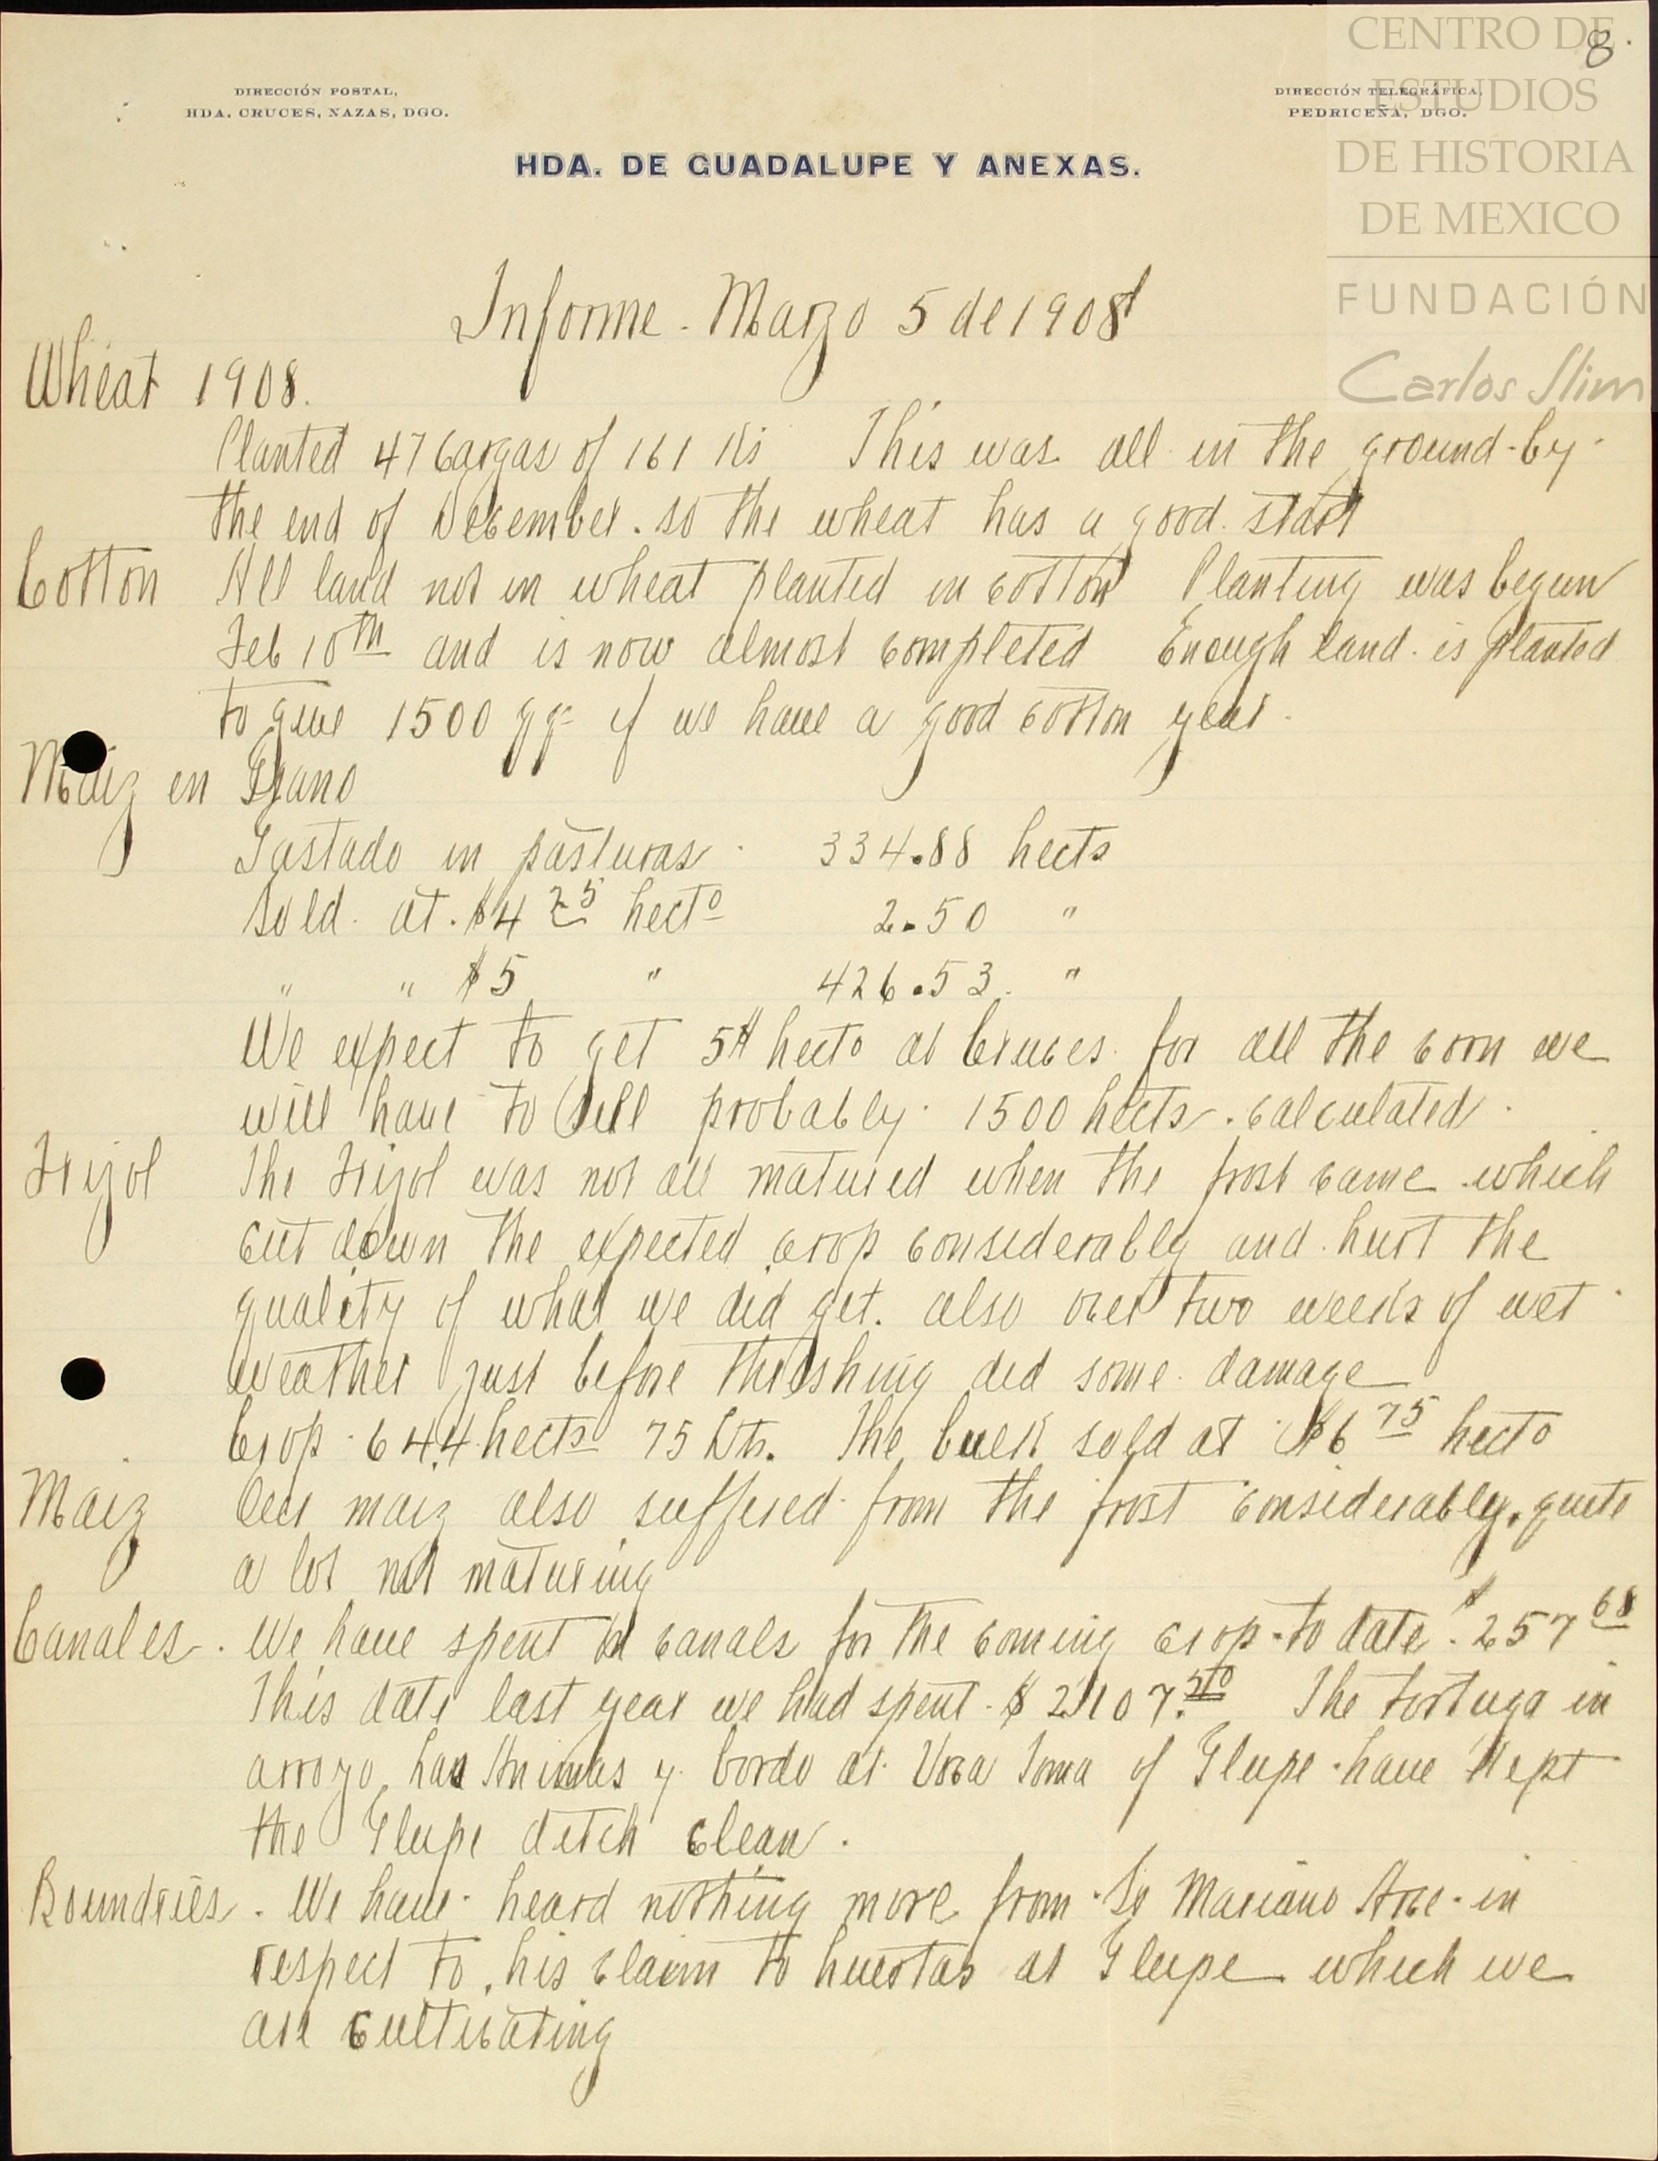 8.
CENTRO DE
ESTUDIOS
DE HISTORIA
DE MEXICO
FUNDACIÓN
Carlos Slim
DIRECCIÓN POSTAL,
HDA. CRUCES, NAZAS, DGO.
DIRECCIÓN TELEGRÁFICA,
PEDRICEÑA, DGO.
HDA. DE GUADALUPE Y ANEXAS.
Informe - Marzo 5 de 1908
Wheat 1908.
Planted 47 Cargas of 161 Ks This was all in the ground by
the end of December. so the wheat has a good start
Cotton All land not in wheat planted in cotton Planting was begun
Feb 10th and is now almost completed Enough land is planted
to give 1500 qq= if we have a good cotton year.
Maiz en Grano
Gastado in pasturas 334.88 hects
Sold at $4 25 hecto 2.50 "
" " $5 " 426.53 "
We expect to get 5$ hecto at Cruces for all the corn we
will have to sell probably 1500 hects. calculated.
Frijol The Frijol was not all matured when the frost came which
cut down the expected crop considerably and hurt the
quality of what we did get. also over two weeks of wet
weather just before threshing did some damage
Crop 644 hects 75 lts. The bulk sold at $6 75 hecto
Maiz Our maiz also suffered from the frost considerably, quite
a lot not maturing
Canales. We have spent on canals for the coming crop to date $257 68
This date last year we had spent $ The tortuga in
arroyo, las Animas y bordo at Toma of Glupe have kept
the Glupe ditch clean.
Boundries. We have heard nothing more from Sr Mariano Arce in
respect to his claim to huertas at Glupe which we
are cultivating